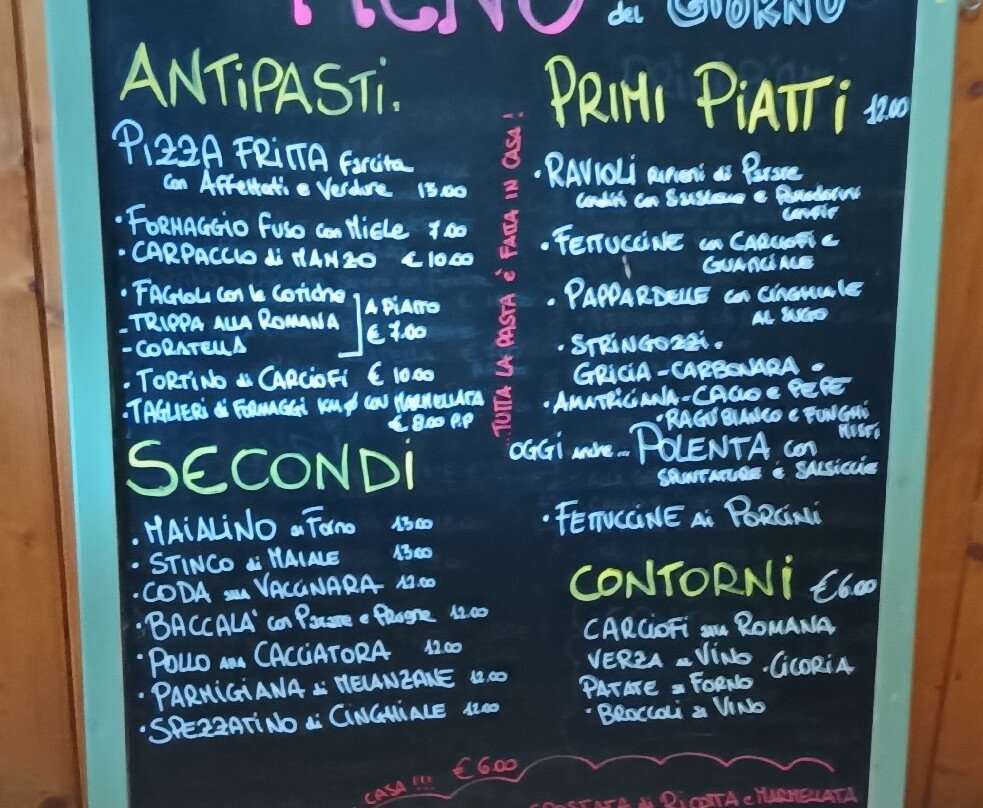 MENÙ del GIORNO
ANTIPASTI.
PIZZA FRITTA farcita
con Affettati e Verdure 13.00
· FORMAGGIO fuso con MIELE 7.00
· CARPACCIO di MANZO € 10.00
· FAGIOLI con le Cotiche
- TRIPPA ALLA ROMANA
- CORATELLA
A PIATTO
€ 7.00
· TORTINO di CARCIOFI € 10.00
· TAGLIERI di FORMAGGI KM Ø con MARMELLATA
€ 8.00 P.P
SECONDI
· MAIALINO al Forno 13.00
· STINCO di MAIALE 13.00
· CODA alla VACCINARA 12.00
· BACCALA' con Patate e Prugne 12.00
· POLLO alla CACCIATORA 12.00
· PARMIGIANA di MELANZANE 12.00
· SPEZZATINO di CINGHIALE 12.00
...TUTTA LA PASTA è FATTA IN CASA!
PRIMI PIATTI 12.00
· RAVIOLI ripieni di Patate
conditi con e Pomodorini
confit
· FETTUCCINE con CARCIOFI e
GUANCIALE
· PAPPARDELLE con CINGHIALE
AL SUGO
· STRINGOZZI.
GRICIA - CARBONARA -
· AMATRICIANA - CACIO e PEPE
· RAGU' BIANCO e FUNGHI
MISTI
OGGI anche... POLENTA con
SPUNTATURE e SALSICCIE
· FETTUCCINE Ai PORCINI
CONTORNI € 6.00
CARCIOFI alla ROMANA
VERZA al VINO · CICORIA
PATATE al FORNO
· BROCCOLI al VINO
CASA !!! € 6.00
CROSTATA di RICOTTA e MARMELLATA